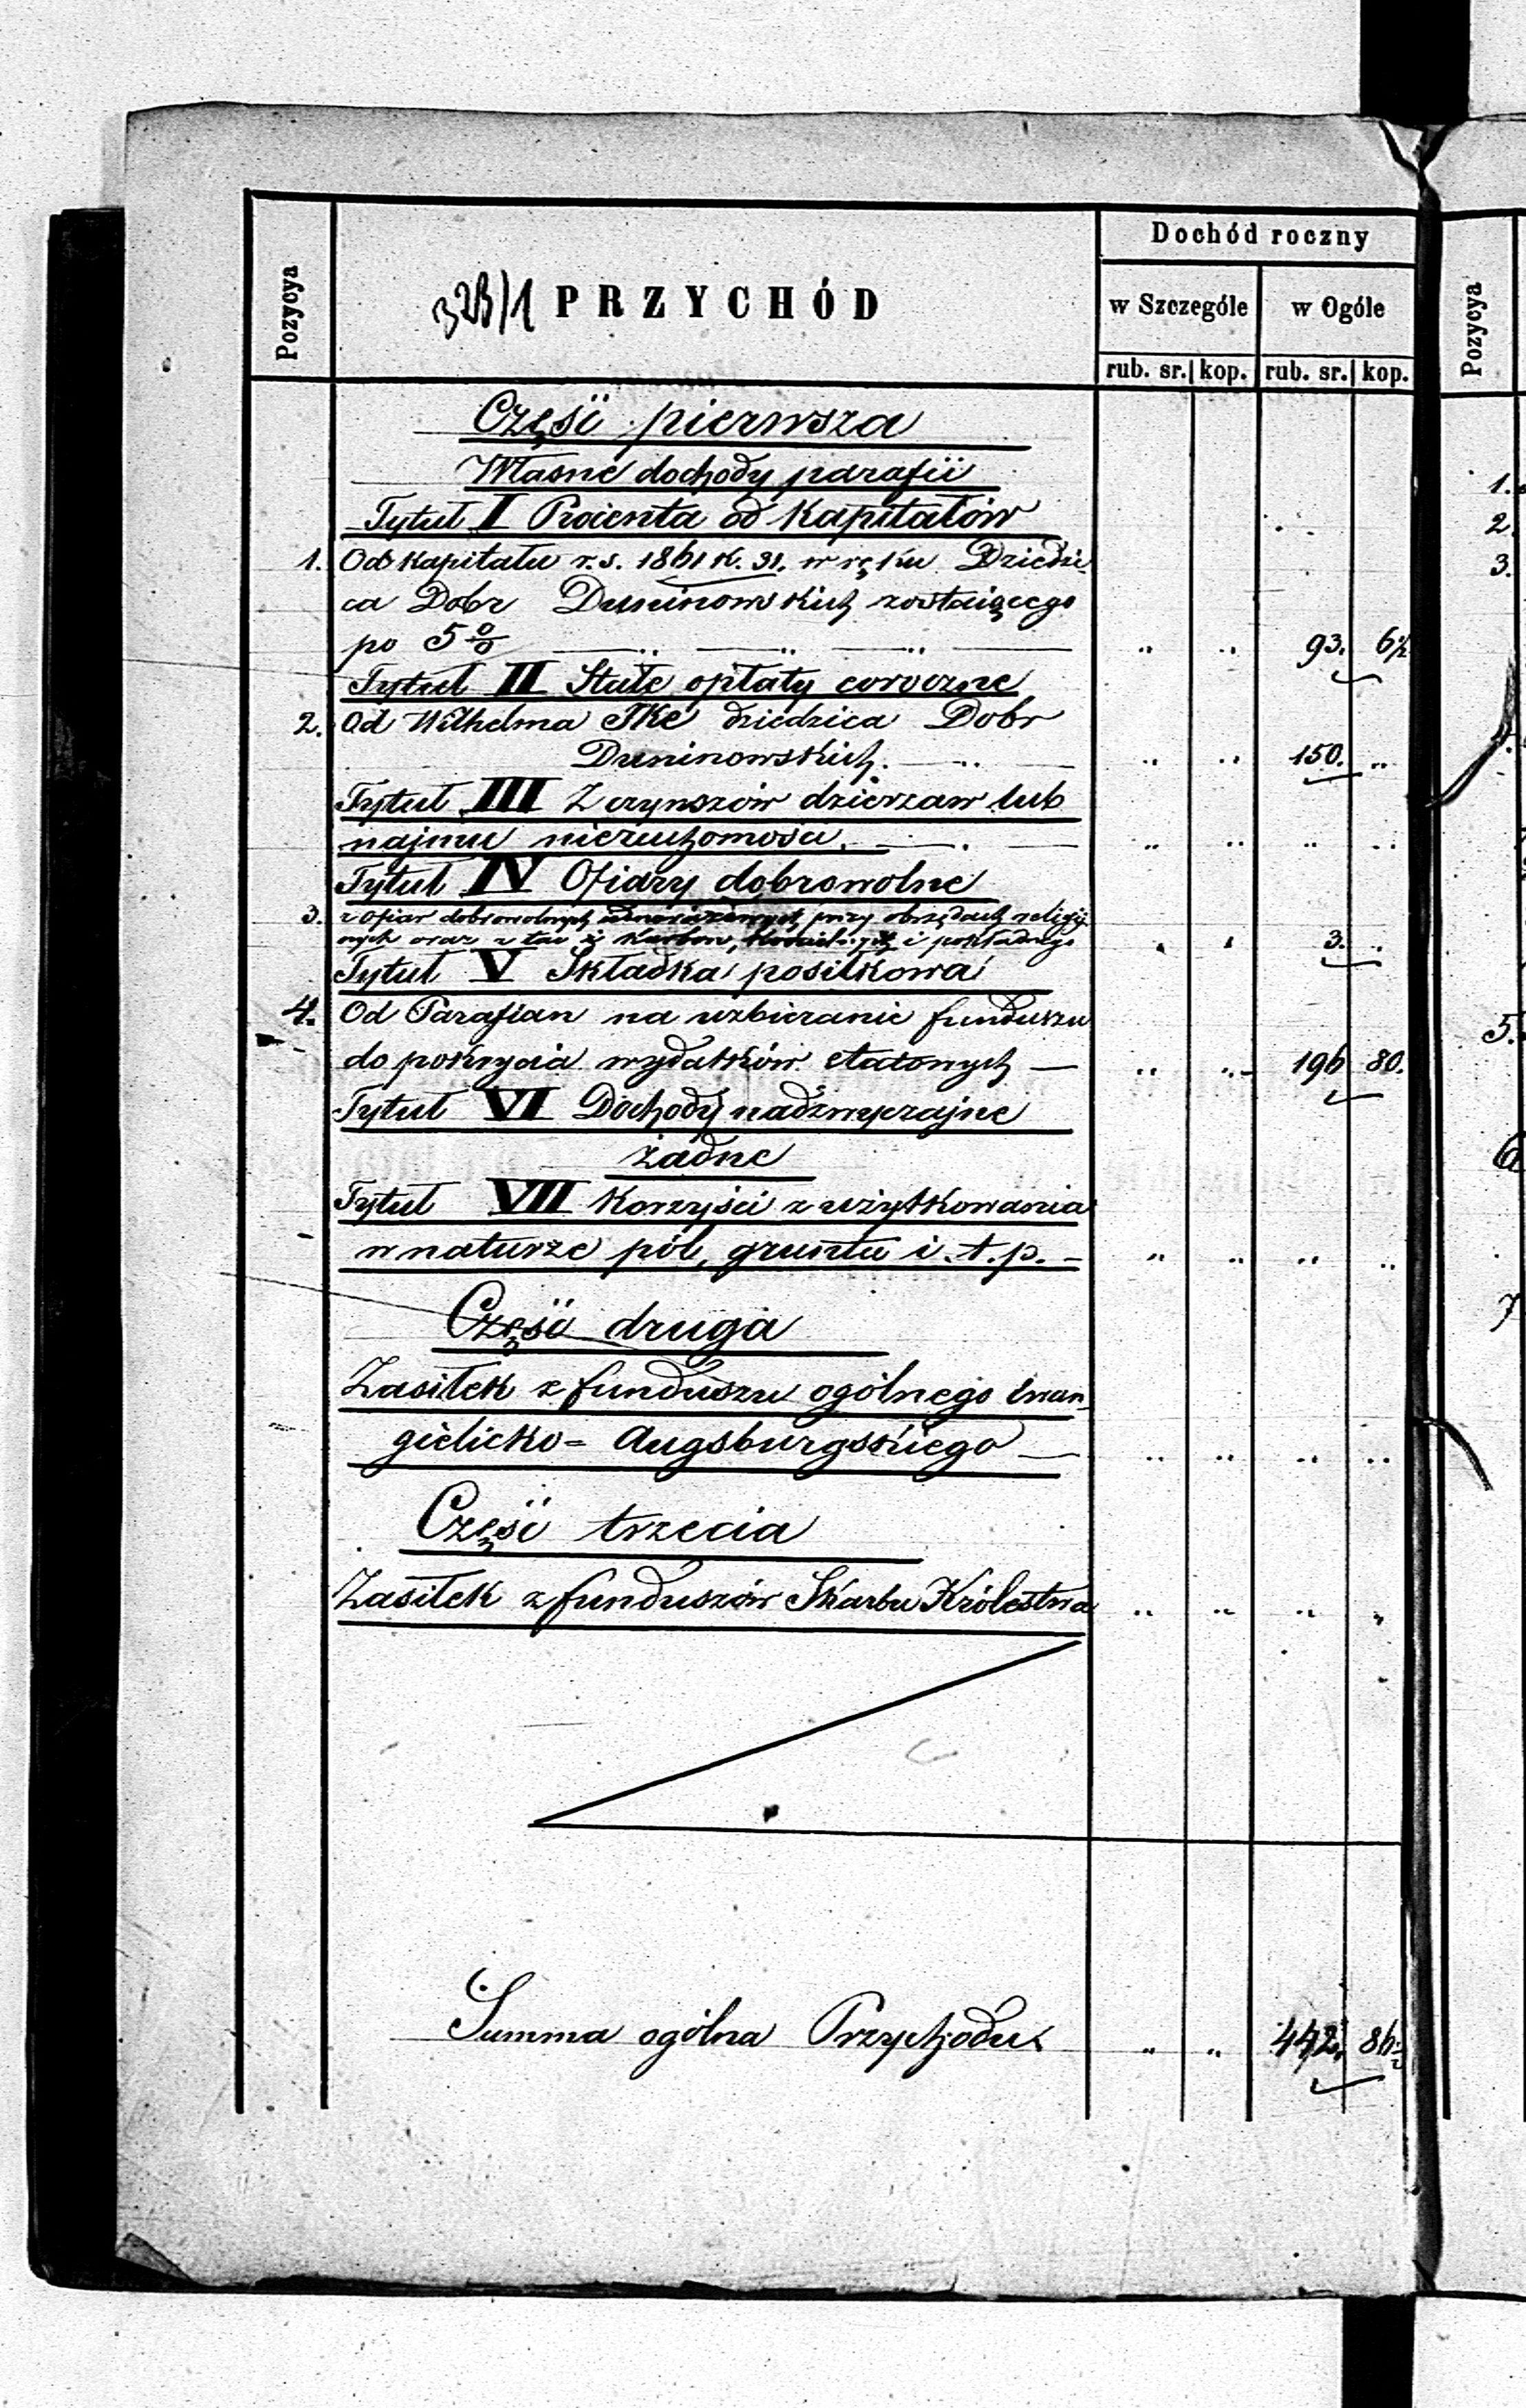 Dochód roczny
Pozycya
328/1 PRZYCHÓD
w Szczególe w Ogóle
rub. sr. kop. rub. sr. kop.
Pozycya
Część pierwsza
Własne dochody parafii
Tytuł I Procenta od Kapitałów
1. Od Kapitału r.s. 1861 k. 31. w ręku Dziedzi
ca Dobr Duninowskich zostaiącego
po 5 % 93. 6½
Tytuł II Stałe opłaty coroczne
2. Od Wilhelma Ike dziedzica Dobr
Duninowskich. 150. ..
Tytuł III Z czynszów dzierżaw lub
najmu nieruchomości.
Tytuł IV Ofiary dobrowolne
3. z ofiar dobrowolnych przy obrzędach religij
nych oraz z tac i karbon, i pokładnego 3. ..
Tytuł V Składka posiłkowa
4. Od Parafian na uzbieranie funduszu
do pokrycia wydatków etatowych — 196 80.
Tytuł VI Dochody nadzwyczajne
żadne
Tytuł VII Korzyści z użytkowania
w naturze pól, gruntu i.t.p. -
Część druga
Zasiłek z funduszu ogólnego Ewan
gielicko= Augsburgskiego —
Część trzecia
Zasiłek z funduszów Skarbu Królestwa
Summa ogólna Przychodu 442. 86½
1.
2.
3.
4.
5.
6
7